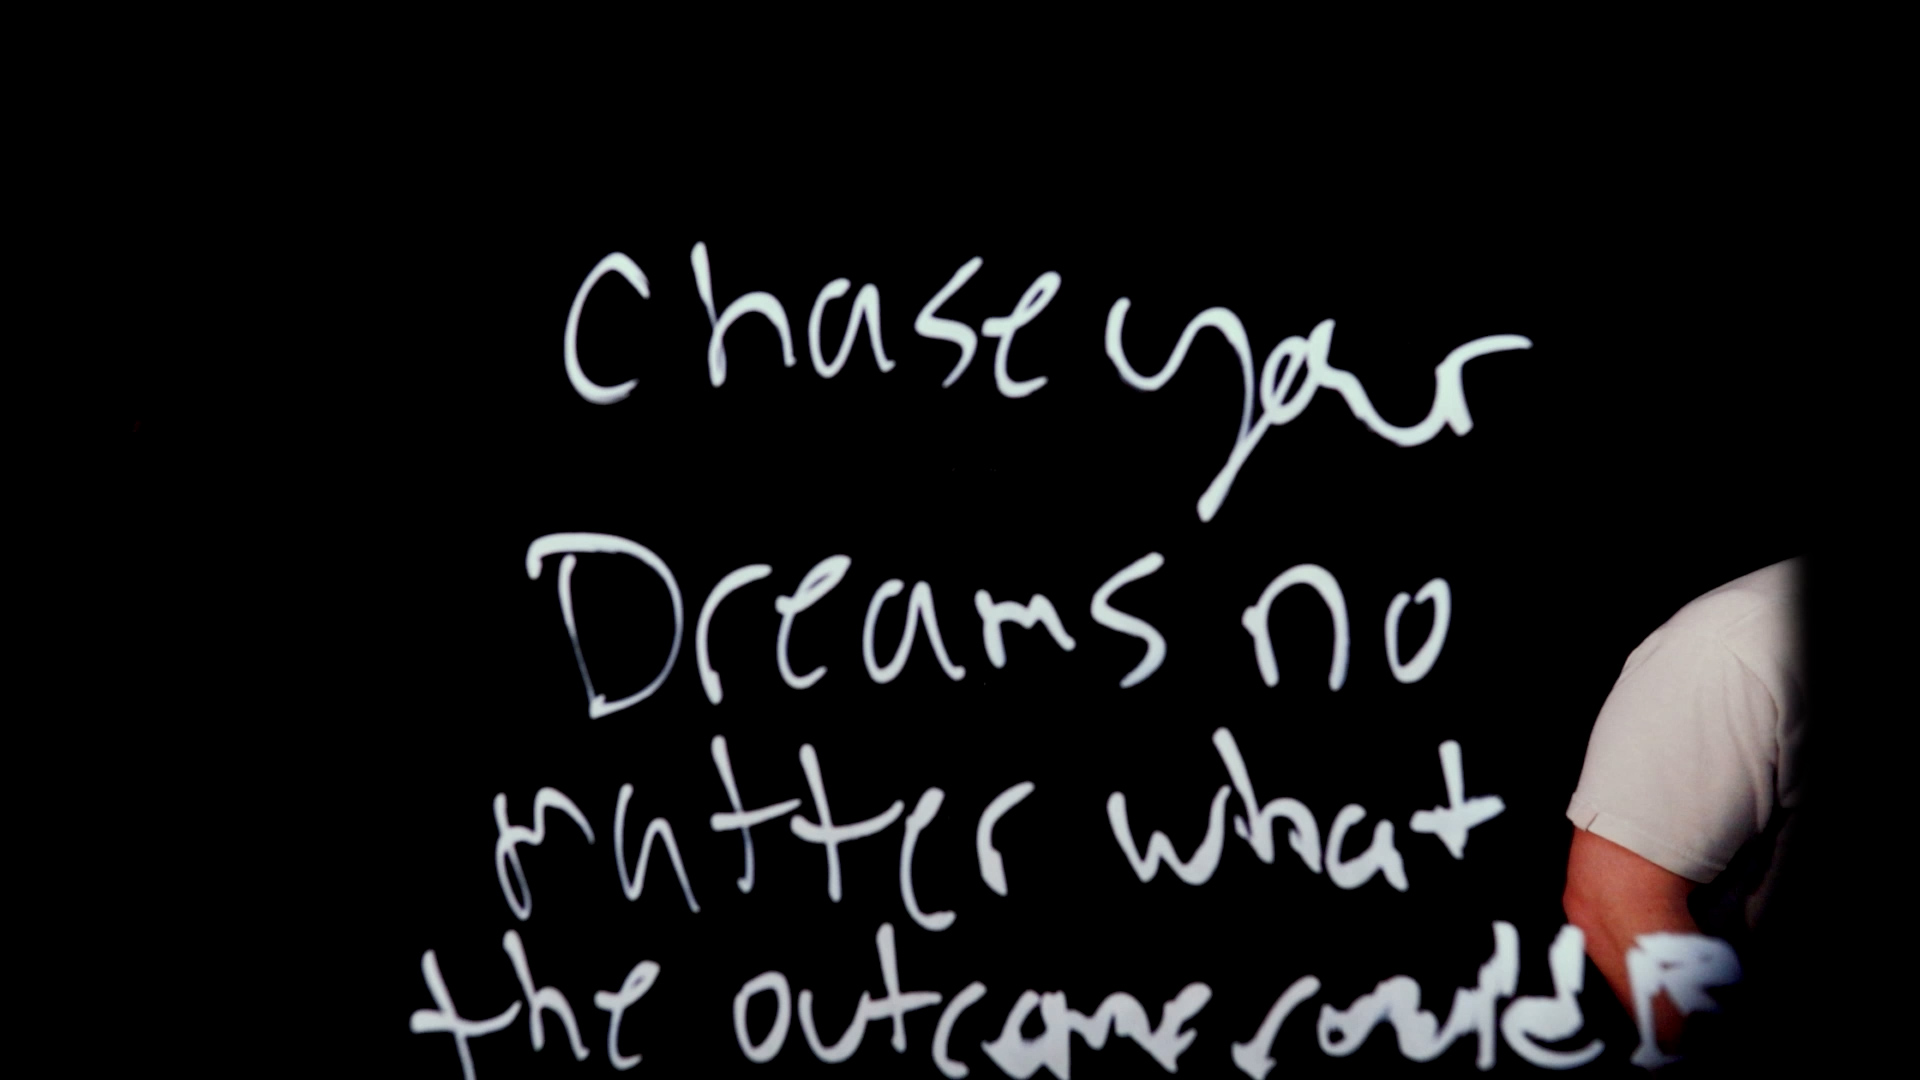 Chase your
Dreams no
matter what
the outcome could